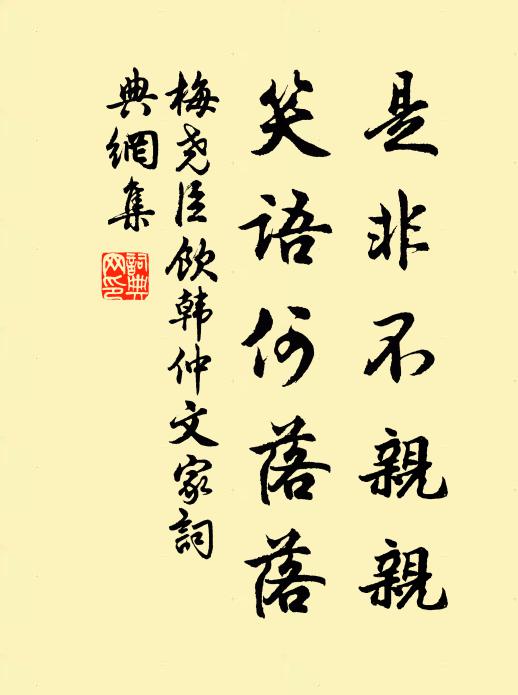 是非不親親
笑語何落落
梅尧臣飲韩仲文家詞
典網集
詞典
网印